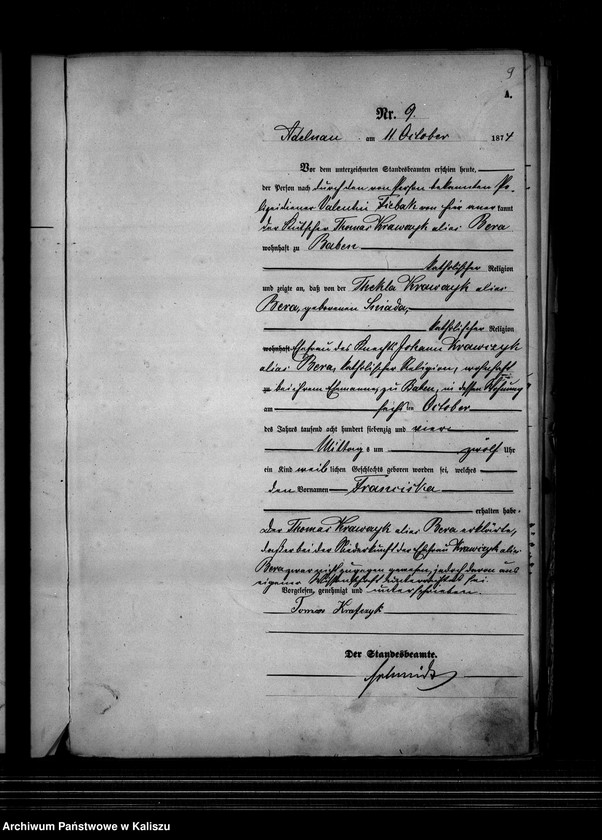 9
A.
Nr. 9.
Adelnau am 11 October 1874
Vor dem unterzeichneten Standesbeamten erschien heute,
der Person nach durch den von Person bekannten Po-
lizeidiener Valentin Fibak von hier aner kannt
der Kutscher Thomas Krawczyk alias Bera
wohnhaft zu Baben
katholischer Religion
und zeigte an, daß von der Thekla Krawczyk alias
Bera, geborenen
katholischer Religion
wohnhaft Ehefrau des Knechts Johann Krawczyk
alias Bera, katholischer Religion, wohnhaft
bei ihrem Ehemanne, zu Baben, in dessen Wohnung
am sechsten October
des Jahrs tausend acht hundert siebenzig und vier
Mittags um zwölf Uhr
ein Kind weib lichen Geschlechts geboren worden sei, welches
den Vornamen Franciska
erhalten habe.
Der Thomas Krawczyk alias Bera erklärte,
daß er bei der Niederkunft der Ehefrau Krawczyk alias
Bera zwar nicht zugegen gewesen, jedoch davon aus
eigener Wissenschaft unterrichtet sei.
Vorgelesen, genehmigt und unterschrieben.
Tomas Krafczyk
Der Standesbeamte.
Schmidt
Archiwum Państwowe w Kaliszu